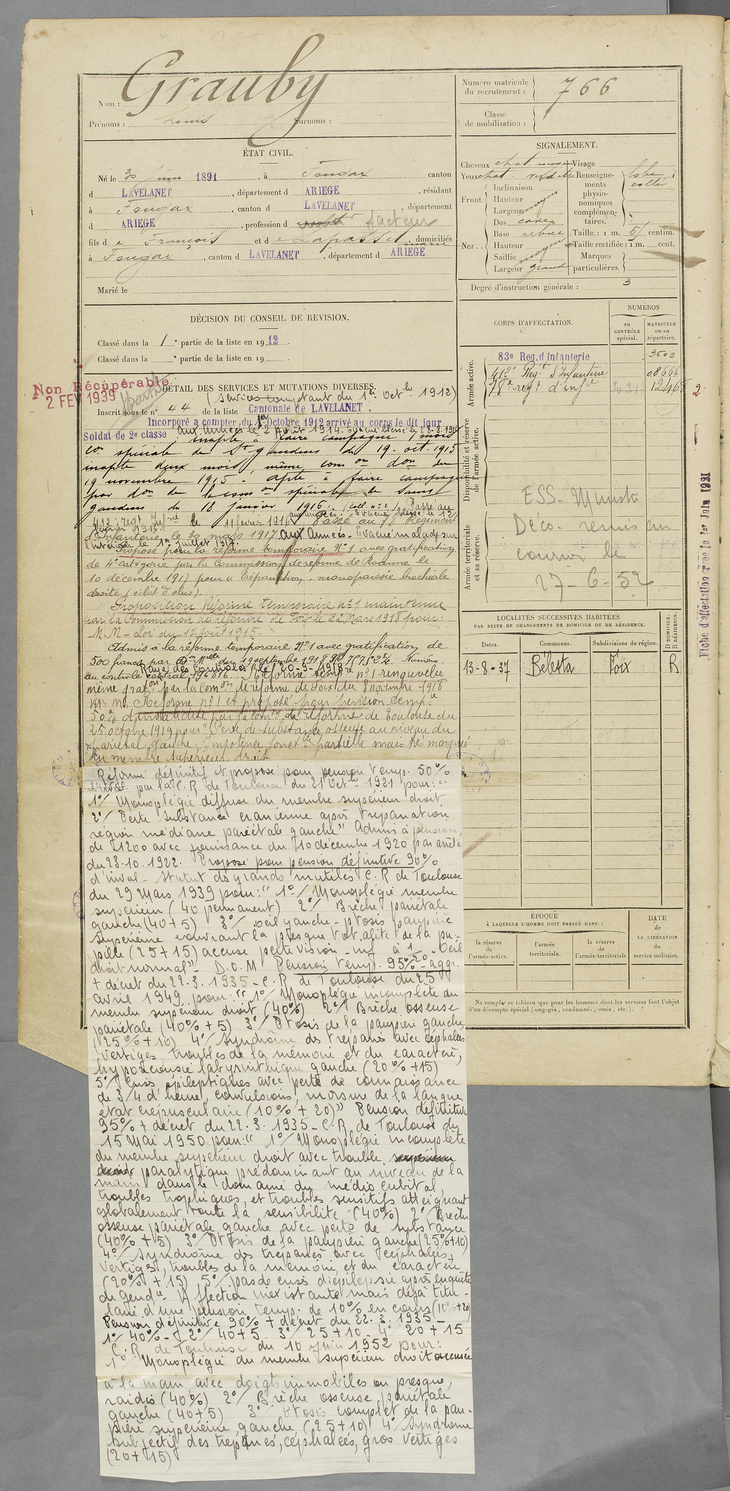 Nom : Grauby
Prénoms : Louis Surnoms :
ÉTAT CIVIL.
Né le 30 juin 1891, à Fougax canton
d LAVELANET, département d ARIEGE, résidant
à Fougax, canton d LAVELANET, département
d ARIEGE, profession d facteur
fils de François et de Lapasset, domiciliés
à Fougax, canton d LAVELANET, département d ARIEGE
Marié le
DÉCISION DU CONSEIL DE REVISION.
Classé dans la 1e partie de la liste en 1912
Classé dans la e partie de la liste en 19
Non Récupérable
2 FEV 1939
DÉTAIL DES SERVICES ET MUTATIONS DIVERSES.
(Services comptant du 1er octbre 1912)
Inscrit sous le n° 44 de la liste Cantonale de LAVELANET.
Incorporé à compter du 1er Octobre 1912 arrivé au corps le dit jour
Soldat de 2e classe aux Armées le 2 août 1914.
inapte à faire campagne 1 mois
con spéciale de St gaudens du 19. oct. 1915
inapte deux mois, même com on d on du
19 novembre 1915 - apte à faire campagne
par d on de la com on spéciale de Saint
gaudens du 18 janvier 1916.
le 11 février 1916. Passé au 78 Régiment
d'infanterie le mars 1917. Aux Armées. Evacué malade sur
l'intérieur le 1er juillet 1917.
Proposé pour la réforme temporaire N°1 avec gratification
de 4e catégorie par la Commission de réforme de Roanne le
10 décembre 1917 pour "trépanation - monoparésie brachiale
droite (éclat d'obus).
Proposition Réforme temporaire n°1 maintenue
par la Commission de réforme de Foix le 22 Mars 1918 pour:
M.M - D.or du 12 août 1915.
Admis à la réforme temporaire N°1 avec gratification, de
500 francs par
au contrôle central 196816. Réforme temp. n°1 renouvelée
même grat on par la com on de réforme de Foix du 8 novembre 1918
Réforme n°1 et proposé pour pension temp.re
50% d'invalidité par la com on de Réforme de Toulouse du
25 octobre 1919 pour "Perte de substance osseuse au niveau du
pariétal gauche. Impotence fonct. partielle mais très marquée
du membre supérieur droit.
Réforme définitif et proposé pour pension temp. 50%
d'inval. par la C.R de Toulouse du 21 Oct. 1921 pour: "
1°/ Monoplégie diffuse du membre supérieur droit
2°/ Perte substance crânienne après trépanation
région médiane pariétale gauche" Admis à pension,
de 1200 avec jouissance du 10 décembre 1920 par arrêté
du 28.10.1922. Proposé pour pension définitive 90%
d'inval. Statut des grands mutilés C.R de Toulouse
du 29 Mars 1939 pour: "1°/ Monoplégie membre
supérieur (40 permanent) 2°/ Brèche pariétale
gauche (40+5) 3°/ oeil gauche - ptosis paupière
supérieure couvrant la presque totalité de la pu-
pille (25+15) accuse perte vision - - à 1 - oeil
droit normal" - D.O.M Pension temp. 95%
+ décret du 22.3.1935 - C.R de Toulouse du 25
avril 1949 pour: "1°/ Monoplégie incomplète du
membre supérieur droit (40%) 2°/ Brèche osseuse
pariétale (40% + 5) 3°/ Ptosis de la paupière gauche
(25% + 10) 4°/ Syndrome des trépanés avec céphalées
vertiges, troubles de la mémoire et du caractère,
hypoacousie labyrinthique gauche (20% + 15)
5°/ Crises épileptiques avec perte de connaissance
de 3/4 d'heure, convulsions, morsure de la langue
état crépusculaire (10% + 20)" Pension définitive
95% + décret du 22.3.1935 - C.R de Toulouse du
15 Mai 1950 pour: "1°/ Monoplégie incomplète
du membre supérieur droit avec trouble
paralytique prédominant au niveau de la
main dans le domaine du médio cubital,
troubles trophiques, et troubles sensitifs atteignant
globalement toute la sensibilité (40%) 2° Brèche
osseuse pariétale gauche avec perte de substance
(40% + 5) 3° Ptosis de la paupière gauche (25% + 10)
4° Syndrome des trépanés avec céphalées,
vertiges, troubles de la mémoire et du caractère
(20% + 15) 5° pas de crises d'épilepsie après enquête
de gend ie Affection inexistante mais déjà titu-
laire d'une pension temp. de 10% en cours (10% + 20)
Pension définitive 90% + décret du 22.3.1935 -
1° 40% - 2° 40+5 3° 25+10 - 4° 20+15
C.R de Toulouse du 10 juin 1952 pour:
1° Monoplégie du membre supérieur droit accusée
à la main avec doigts immobiles ou presque,
raidis (40%) 2° Brèche osseuse pariétale
gauche (40+5) 3° Ptosis complet de la pau-
pière supérieure gauche (25+10) 4° Syndrome
subjectif des trépanés, céphalées, gros vertiges
(20+15)
Numéro matricule du recrutement : 766
Classe de mobilisation :
SIGNALEMENT.
Cheveux chat Visage
Yeux Renseigne-
ments
physio-
nomiques
complémen-
taires.
Front Inclinaison
Hauteur
Largeur
Nez Dos cave
Base relevée Taille : 1 m. centim.
Hauteur Taille rectifiée : 1 m. cent.
Saillie Marques
Largeur grand particulières.
Degré d'instruction générale : 3
CORPS D'AFFECTATION.
NUMÉROS
AU CONTRÔLE SPÉCIAL.
MATRICULE OU AU RÉPERTOIRE.
Armée active.
83e Reg. d'Infanterie
412e Regt d'Infanterie
78e regt d'infie
Disponibilité et réserve de l'armée active.
Armée territoriale et sa réserve.
27-6-52
Fiche d'affectation 1er Juin 1921
LOCALITÉS SUCCESSIVES HABITÉES
PAR SUITE DE CHANGEMENTS DE DOMICILE OU DE RÉSIDENCE.
Dates. Communes. Subdivisions de région. D DOMICILE. R RÉSIDENCE.
13-8-37 Bélesta Foix R
ÉPOQUE
À LAQUELLE L'HOMME DOIT PASSER DANS :
la réserve de l'armée active.
l'armée territoriale.
la réserve de l'armée territoriale.
DATE
DE LA LIBÉRATION DU
service militaire.
Ne remplir ce tableau que pour les hommes dont les services font l'objet
d'un décompte spécial (engagés, condamnés, omis, etc.).